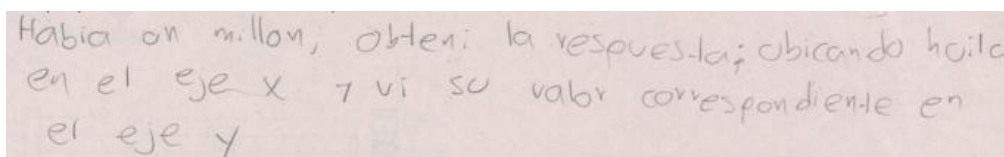 Habia un millon, obteni la respuesta; ubicando
en el eje x y vi su valor correspondiente en
el eje y